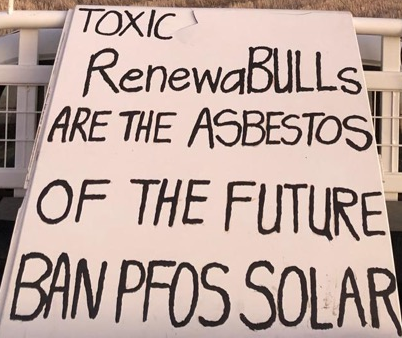 TOXIC
RenewaBULLs
ARE THE ASBESTOS
OF THE FUTURE
BAN PFOS SOLAR